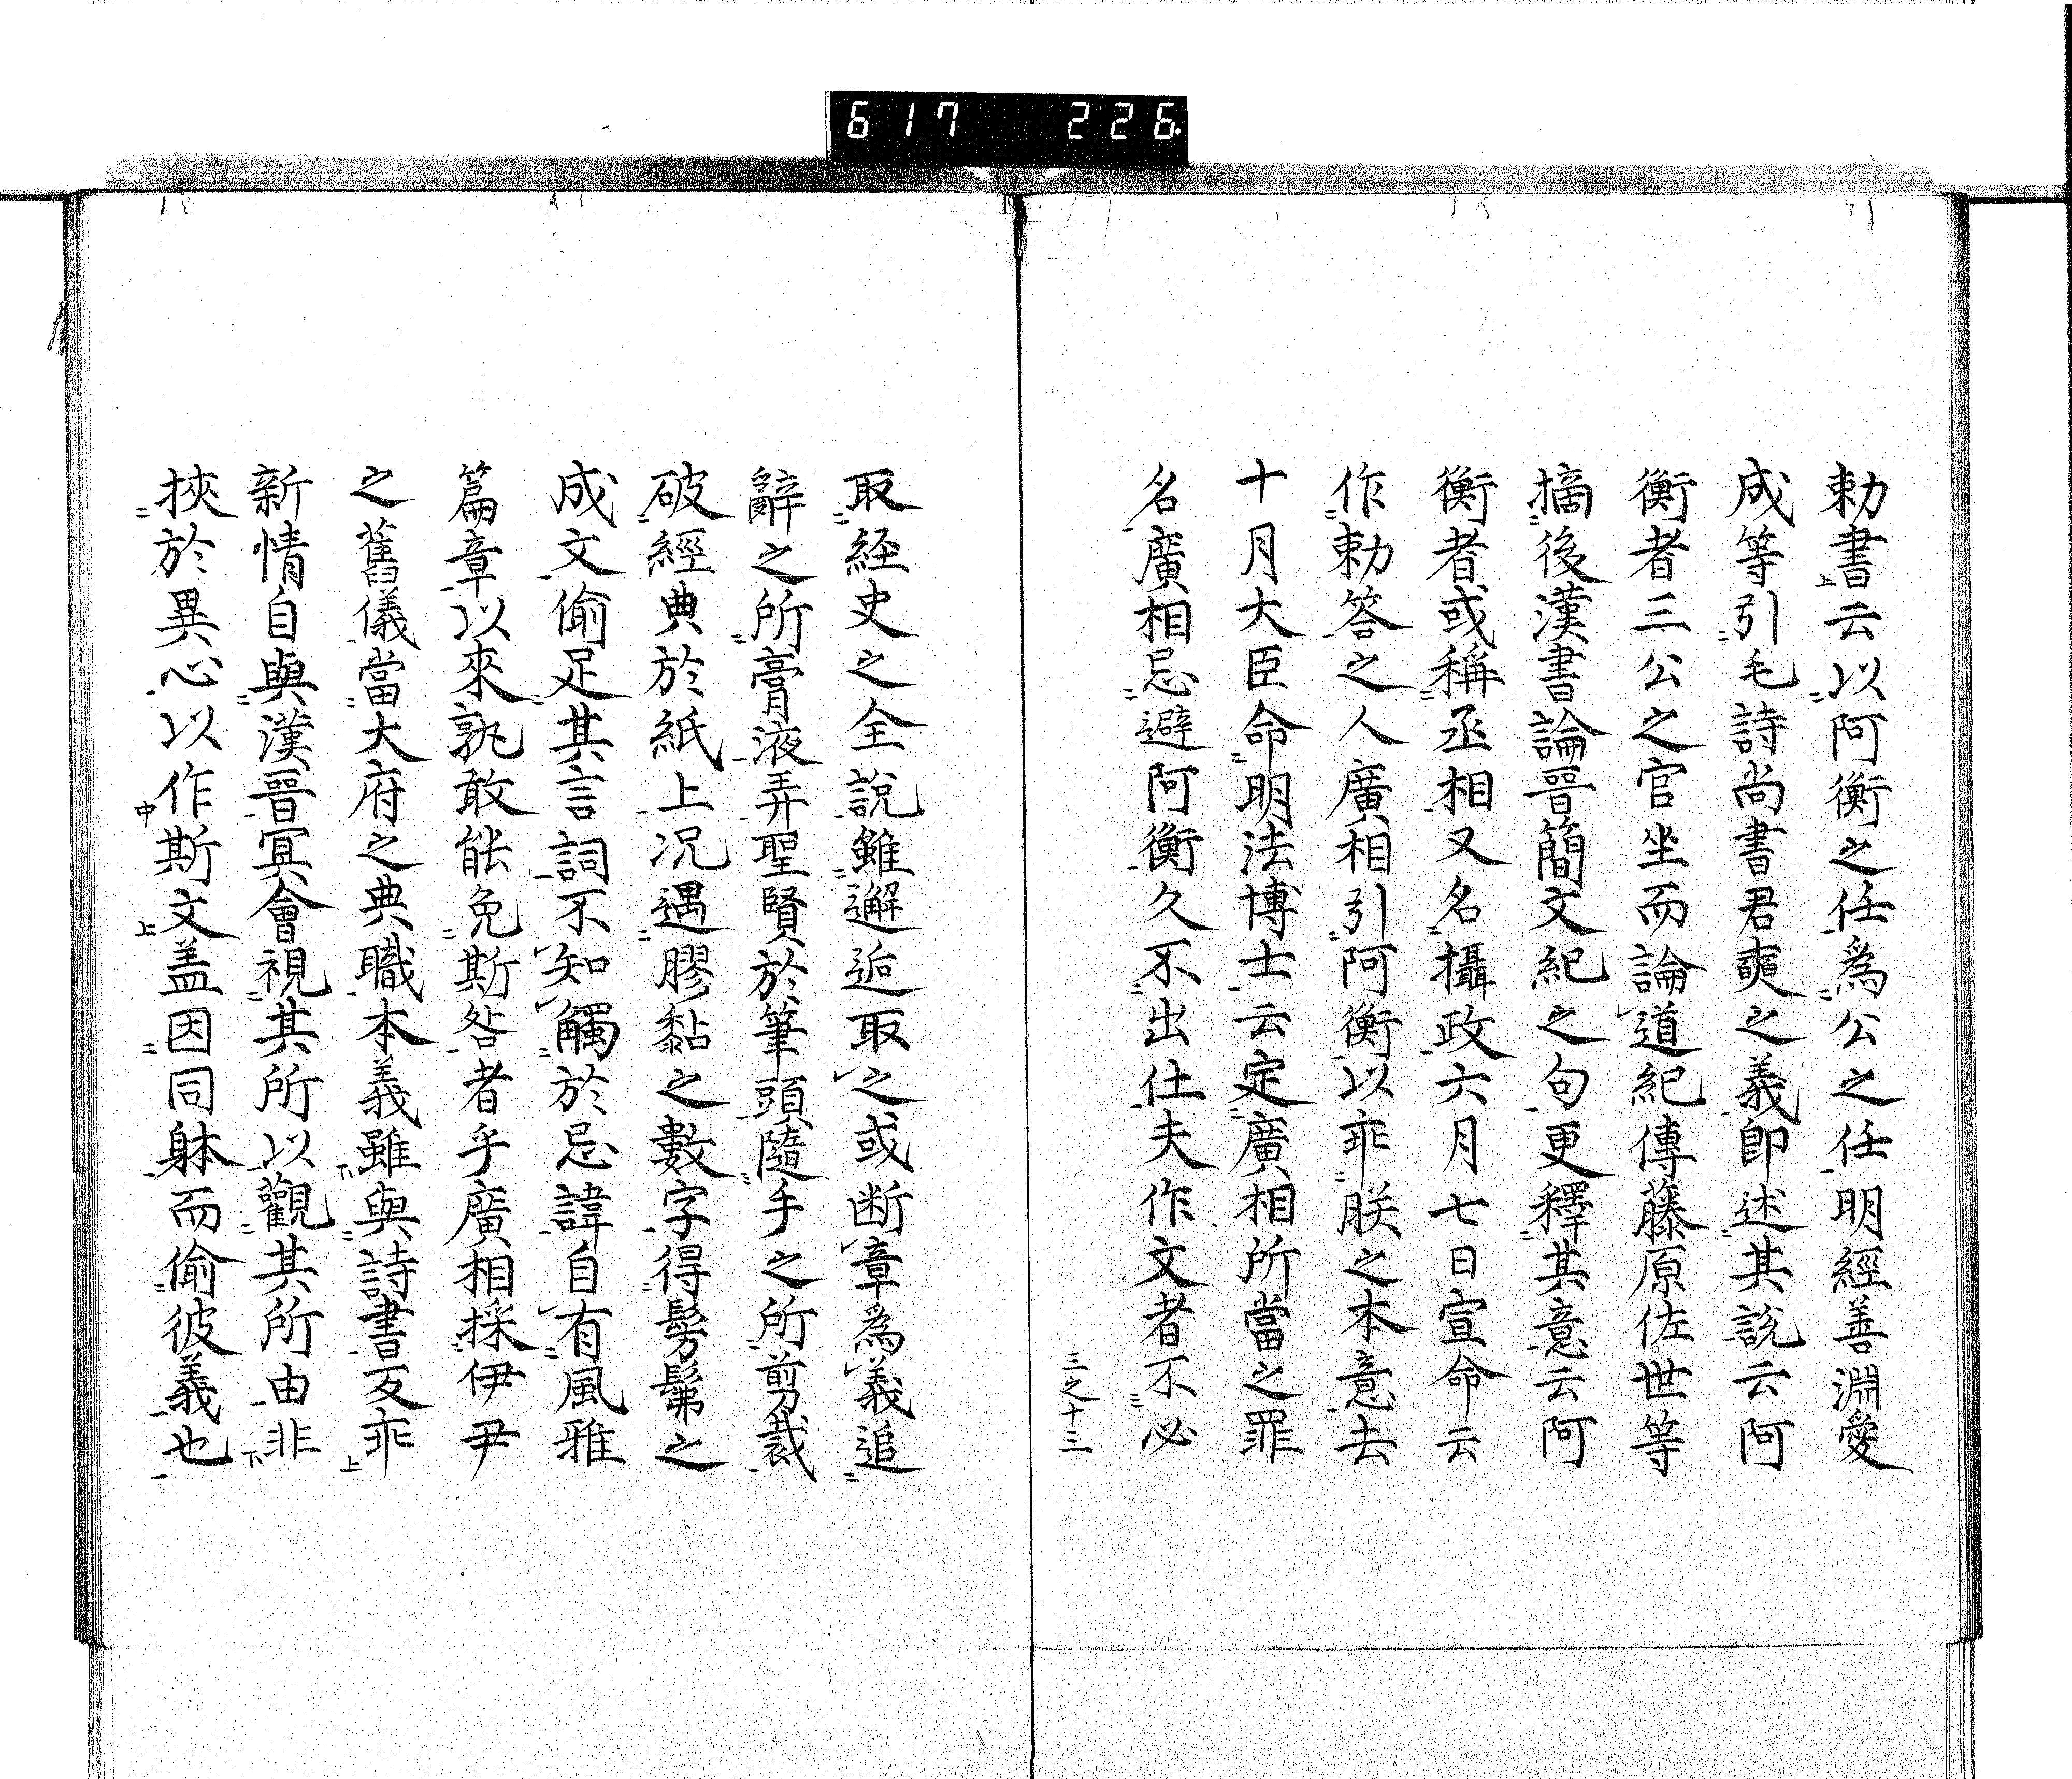 617 226
勅書云以阿衡之任為公之任明經善淵愛
成等引毛詩尚書君奭之義即述其説云阿
衡者三公之官坐而論道紀傳藤原佐世等
摘後漢書論晉簡文紀之句更釋其意云阿
衡者或稱丞相又名攝政六月七日宣命云
作勅答之人廣相引阿衡以乖朕之本意去
十月大臣命明法博士云定廣相所當之罪
名廣相忌避阿衡久不出仕夫作文者不必
三之十三
取経史之全説雖邂逅取之或断章為義追
辭之所膏液弄聖賢於筆頭隨手之所剪裁
破經典於紙上況遇膠黏之數字得髣髴之
成文偷足其言詞不知觸於忌諱自有風雅
篇章以來孰敢能免斯咎者乎廣相採伊尹
之舊儀當大府之典職本義雖與詩書反乖
新情自與漢晉冥會視其所以觀其所由非
挾於異心以作斯文盖因同躰而偷彼義也